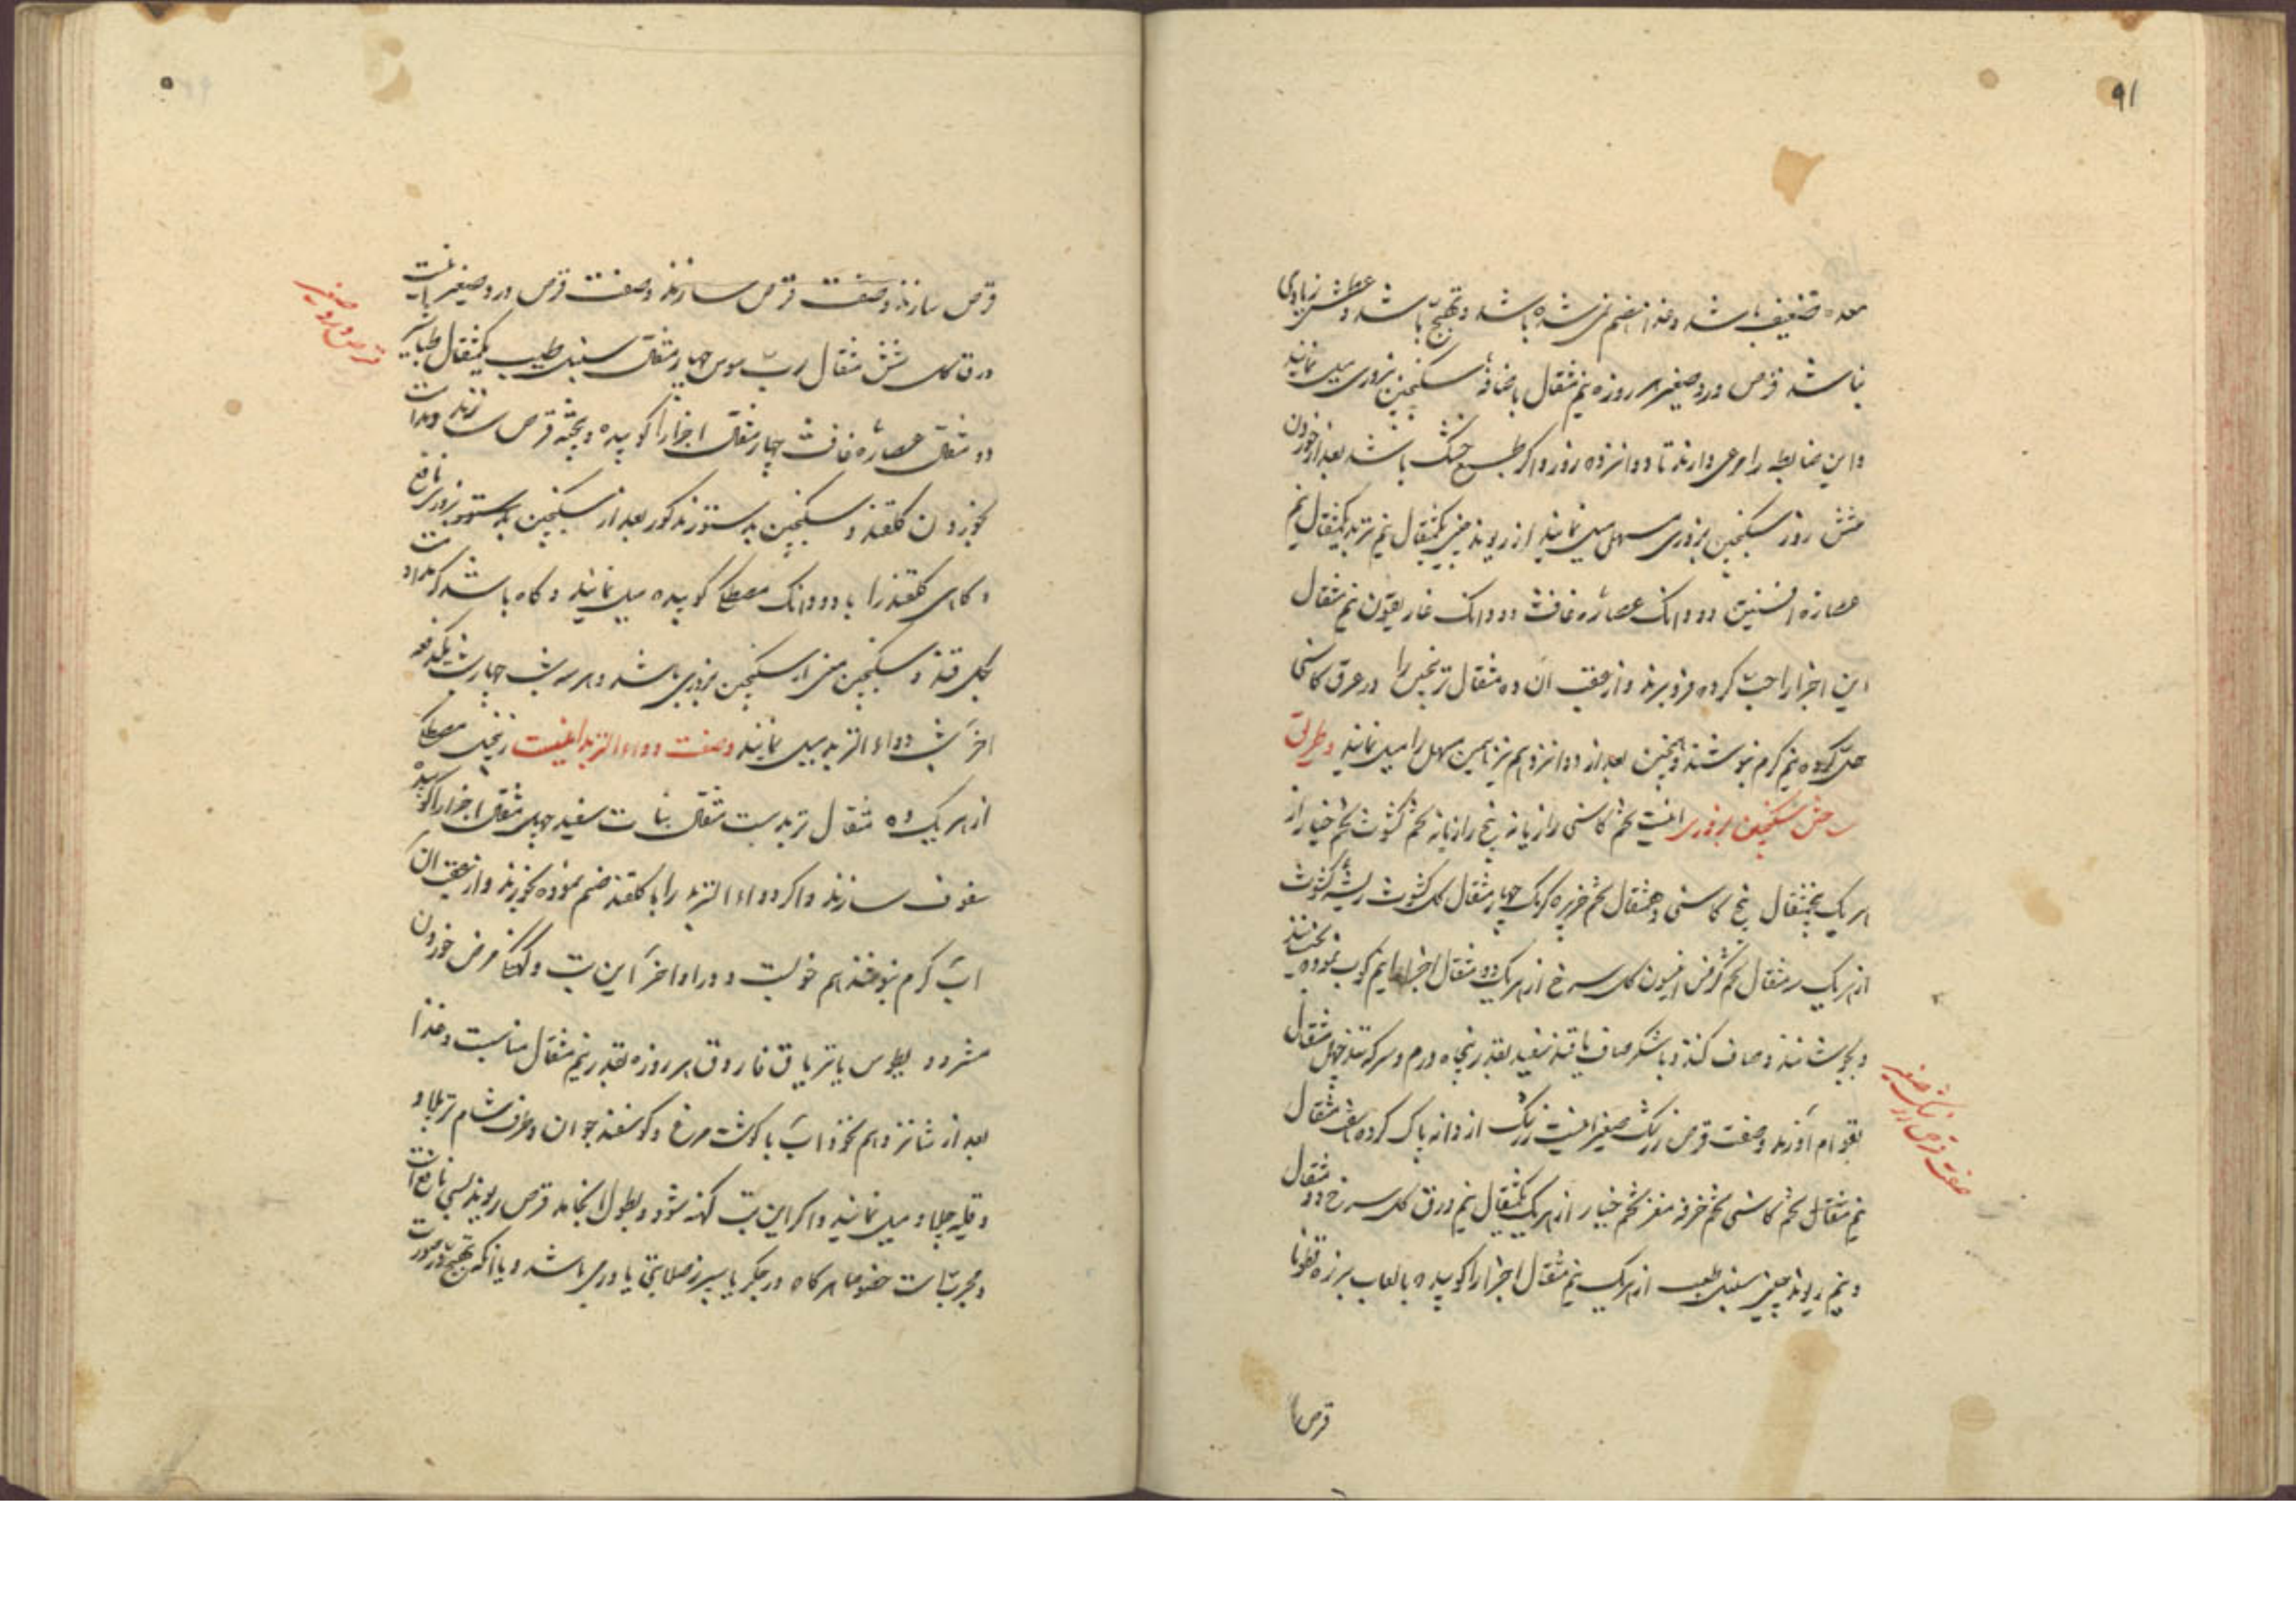 ۹۱
معده ضعیف باشد و غذا هضم نمی شده باشد و تهبج باشد و عطش زیادی
نباشد قرص ورد صغیر هر روزه نیم مثقال باضافهٔ سکنجبین بزوری میل نمایند
و این ضابطه را مرعی دارند تا دوانزده روز و اکر طبیع خشک باشد بعد از خوردن
شش روز سکنجبین بزوری مسهل میل نمایند از ریوند چینی یکمثقال نیم تربد یکمثقال نیم
عصاره افسنتین دو دانک عصاره غافث دو دانک غاریقون نیم مثقال
این اجزا را حبّ کرده فرو برند و از عقب آن ده مثقال ترنجبین را در عرق کاسنی
حلّ کرده نیم کرم بنوشند و همچنین بعد از دوانزدهم نیز همین مسهل را میل نمایند و طریق
ساختن سکنجبین بزوری اینست تخم کاسنی رازیانه بیخ رازیانه تخم کشوث تخم خیار از
هر یک پنجمثقال بیخ کاسنی دهمثقال تخم خربزه کرمک چهار مثقال کل کشوث ریشه کشوث
از هر یک سه مثقال تخم کرفس انیسون کل سرخ از هر یک دو مثقال اجزا را نیم کوب نموده بخیسانند
و بجوشانند و صاف کنند و باشکر صاف یا قند سفید بقدر پنجاه درم و سرکه تند چهل مثقال
بقوام آورند و صفت قرص زرشک صغیر اینست زرشک از دانه پاک کرده هفت مثقال
صفت قرص زرشک صغیر
نیم مثقال تخم کاسنی تخم خرفه مغز تخم خیار از هر یک یکمثقال نیم ورق کل سرخ دو مثقال
و نیم ریوند چینی سنبل طیب از هر یک نیم مثقال اجزا را کوبیده بالعاب بزرقطونا
قرص سا
قرص سازند و صفت قرص سازند و صفت قرص ورد صغیر اینست
قرص ورد صغیر
ورق کل شش مثقال ربّ سوس چهار مثقال سنبل طیب یکمثقال طباشیر
دو مثقال عصاره غافث چهار مثقال اجزا را کوبیده و بیخته قرص سازند و مداومت
بخوردن کلقند و سکنجبین بدستور مذکور بعد از سکنجبین بدستور بزوری نافع
و کاهی کلقند را با دو دانک مصطکی کوبیده میل نمایند و کاه باشد که مداومت
بکلقند و سکنجبین از سکنجبین بزوری باشد و هر سه شب چهار شب یکدفعه
آخر شب دواء التربد میل نمایند و صفت دواء التربد اینست زنجبیل مصطکی
از هر یک ده مثقال تربد بیست مثقال نبات سفید چهل مثقال اجزا را کوبیده
سفوف سازند و اکر دواء التربد را با کلقند ضم نموده بخورند و از عقب آن
آب کرم بنوشند هم خوبست و در اواخر این تب و کهنکی مرض خوردن
مثرودیطوس یا تریاق فاروق هر روزه بقدر نیم مثقال مناسبست و غذا
بعد از شانزدهم نخوداب با کوشت مرغ و کوسفند جوان و طرف شام تر پلاو
و قلیه چلاو میل نمایند و اکر این تب کهنه شود و بطول انجامد قرص ریوند بسی نافع است
و مجربست خصوصا هرکاه در جکر یا سپرز صلابتی یا ورمی باشد و یا انکه تهبج در صورت